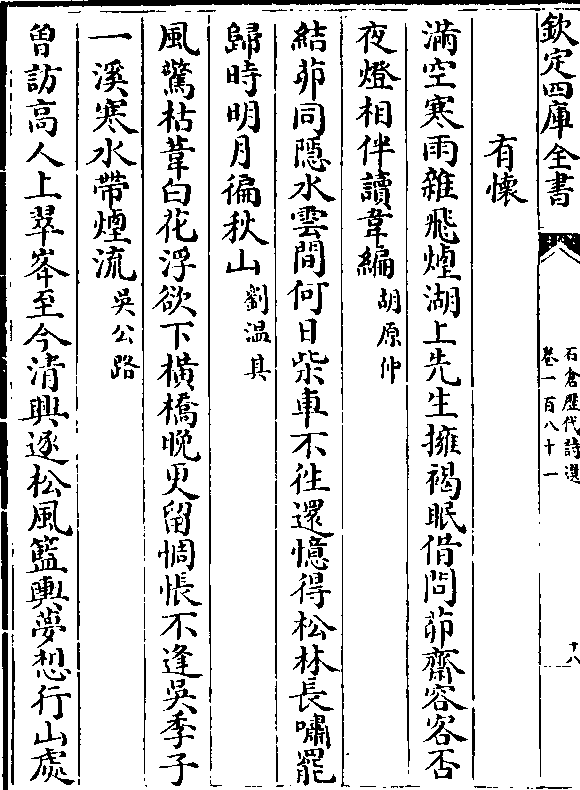 欽定四庫全書
石倉歷代詩選
卷一百八十一
十八
有懷
滿空寒雨雜飛煙湖上先生擁褐眠借問茆齋容客否
夜燈相伴讀韋編胡原仲
結茆同隱水雲間何日柴車不徃還憶得松林長嘯罷
歸時明月徧秋山劉温其
風驚枯葦白花浮欲下橫橋晚更留惆悵不逢吳季子
一溪寒水帶煙流吳公路
曽訪高人上翠峯至今清興逐松風籃輿夢想行山處